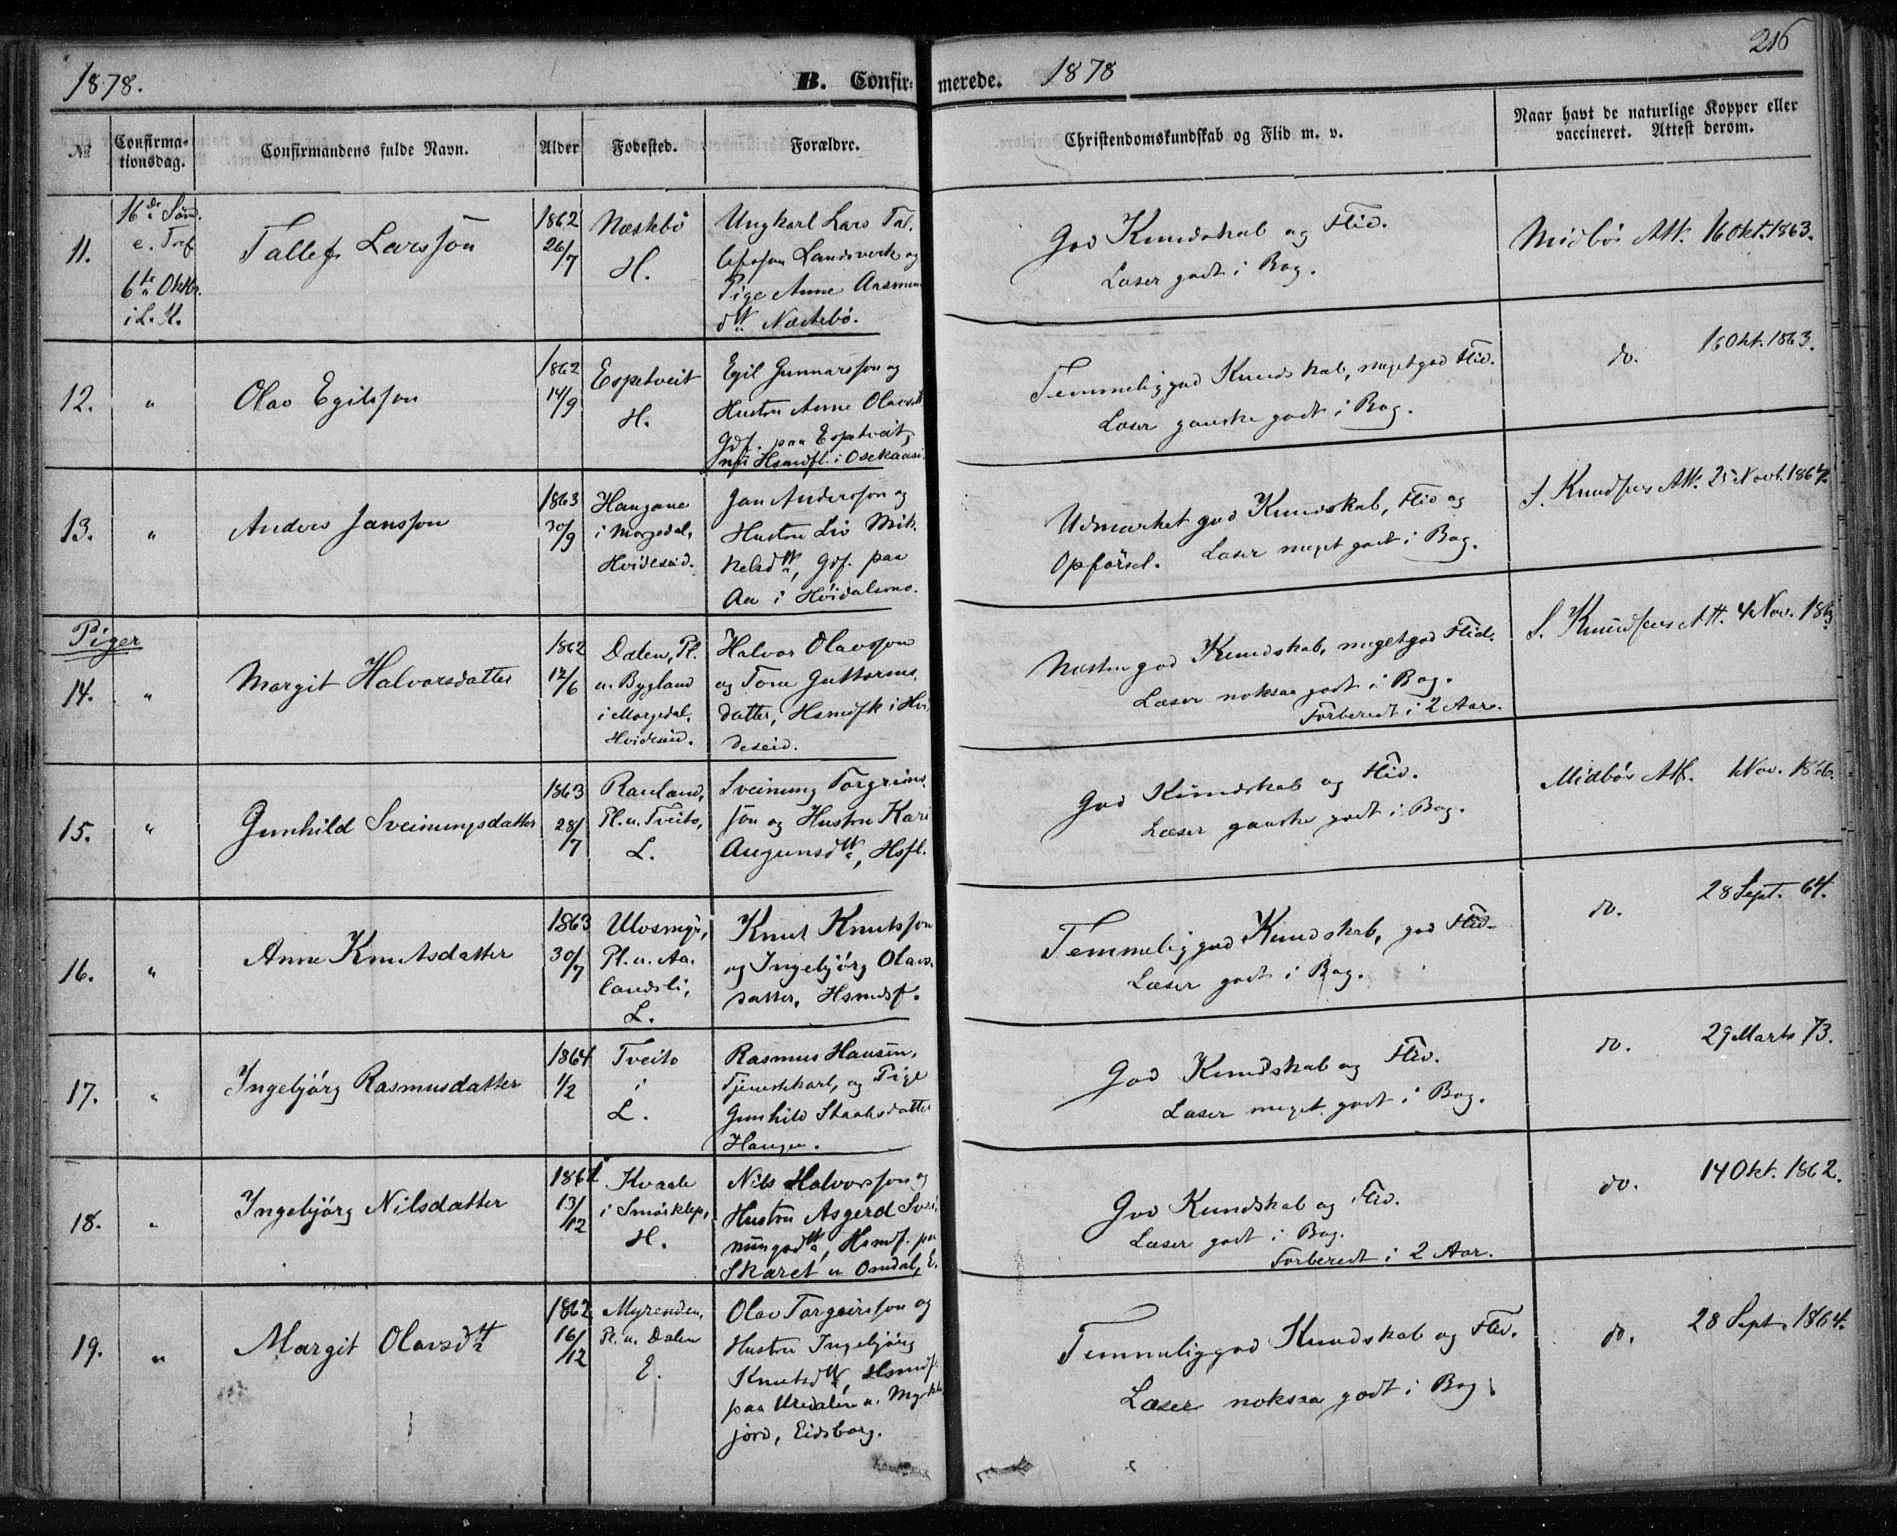 1878.
B. Confirmerede.
1878
216
№
Confirmationsdag.
Confirmandens fulde Navn.
Alder
Fødested.
Forældre.
Christendomskundskab og Flid m. v.
Naar havt de naturlige Kopper eller vaccineret. Attest derom.
11.
16de Sönd.
e. Tref
6te Oktbr.
i L. K.
Tallef Larsson
1862
26/7
Næstebö
H.
Ungkarl Lars Tal-
lefsson Landsverk og
Pige Anne Aasmun
dttr Næstebö.
God Kundskab og Flid.
Læser godt i Bog.
Midbös Att. 16 Okt. 1863.
12.
"
Olav Egilsson
1862
14/9
Espetveit
H.
Egil Gunnarsson og
Hustru Anne Olavsdtt
Gdf. paa Espetveit,
nu Hsmdfl. i Osekaasi
Temmelig god Kundskab, meget god Flid.
Læser ganske godt i Bog.
do. 16 Okt. 1863.
13.
"
Anders Jansson
1863
30/9
Haugane
i Morgedal,
Hvideseid.
Jan Andersson og
Hustru Liv Mik-
kelsdtr, Gdf. paa
Aa i Höidalsmo.
Udmærket god Kundskab, Flid og
Opförsel. Læser meget godt i Bog.
S. Knudsens Att. 25 Novb. 1867.
Piger
14.
"
Margit Halvorsdatter
1862
12/6
Dalen, Pl.
u. Bygland
i Morgedal,
Hvideseid.
Halvor Olavsson
og Tone Guttorms-
datter, Hsmdfk i Hvi-
deseid.
Næsten god Kundskab, meget god Flid.
Læser noksaa godt i Bog.
Forberedt i 2 Aar.
S. Knudsens Att. 4 Nov. 1863
15.
"
Gunhild Sveinungsdatter
1863
28/7
Rauland,
Pl. u. Tveito,
L.
Sveinung Torgrims-
son og Hustru Kari
Augunsdtr, Hsfl.
God Kundskab og Flid.
Læser ganske godt i Bog.
Midbös Att. 1 Nov. 1866.
16.
"
Anne Knutsdatter
1863
30/7
Ulosmyr,
Pl. u. Aa-
landsli,
L.
Knut Knutsson
og Ingebjörg Olavs-
datter, Hsmdsf.
Temmelig god Kundskab, god Flid.
Læser godt i Bog.
do. 28 Sept. 64.
17.
"
Ingebjörg Rasmusdatter
1864
1/2
Tveito
i
L.
Rasmus Hansen,
Tjenestekarl, og Pige
Gunhild Staalsdatter
Haugen.
God Kundskab og Flid.
Læser meget godt i Bog.
do. 29 Marts 73.
18.
"
Ingebjörg Nilsdatter
1861
13/12
Kvaale
i Smörklep,
H.
Nils Halvorsson og
Hustru Asgerd Svei-
nungsdtr, Hsmdf. paa
Skaret u Omdal, E.
God Kundskab og Flid.
Læser godt i Bog.
Forberedt i 2 Aar.
do. 14 Okt. 1862.
19.
"
Margit Olavsdtr
1862
16/12
Myrenden,
Pl. u. Dalen
E.
Olav Torgeirsson og
Hustru Ingebjörg
Knutsdtr, Hsmdf.
paa Uredalen u. Mykle
jord, Eidsborg.
Temmelig god Kundskab og Flid.
Læser noksaa godt i Bog.
do. 28 Sept. 1864.